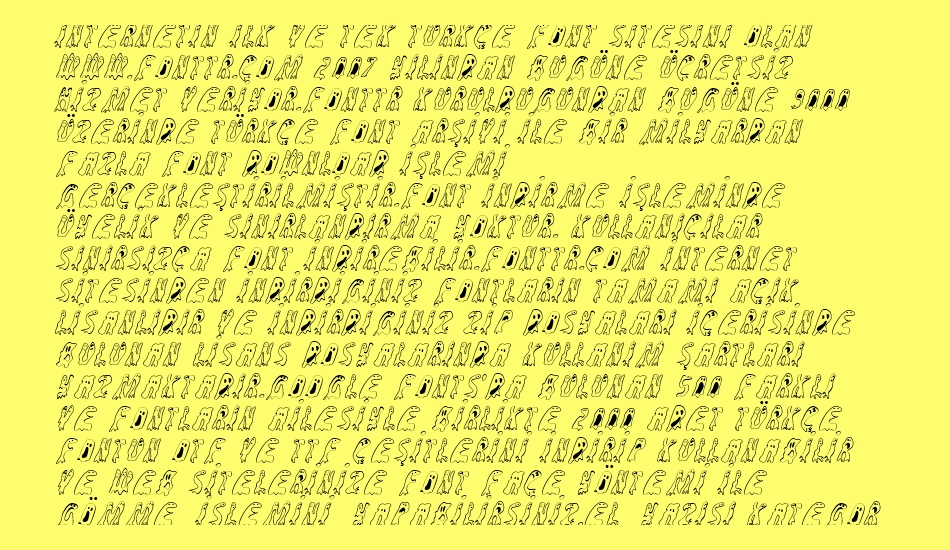 İNTERNETİN İLK VE TEK TÜRKÇE FONT SİTESİNİ OLAN
WWW.FONTTR.COM 2007 YILINDAN BUGÜNE ÜCRETSİZ
HİZMET VERİYOR.FONTTR KURULDUĞUNDAN BUGÜNE 9000
ÜZERİNDE TÜRKÇE FONT ARŞİVİ İLE BİR MİLYARDAN
FAZLA FONT DOWNLOAD İŞLEMİ
GERÇEKLEŞTİRİLMİŞTİR.FONT İNDİRME İŞLEMİNDE
ÜYELİK VE SINIRLANDIRMA YOKTUR. KULLANICILAR
SINIRSIZCA FONT İNDİREBİLİR.FONTTR.COM İNTERNET
SİTESİNDEN İNDİRDİĞİNİZ FONTLARIN TAMAMI AÇIK
LİSANLIDIR VE İNDİRDİĞİNİZ ZIP DOSYALARI İÇERİSİNDE
BULUNAN LİSANS DOSYALARINDA KULLANIM ŞARTLARI
YAZMAKTADIR.GOOGLE FONTS'DA BULUNAN 500 FARKLI
VE FONTLARIN AİLESİYLE BİRLİKTE 2000 ADET TÜRKÇE
FONTUN OTF VE TTF ÇEŞİTLERİNİ İNDİRİP KULLANABİLİR
VE WEB SİTELERİNİZE FONT FACE YÖNTEMİ İLE
GÖMME İŞLEMİNİ YAPABİLİRSİNİZ.EL YAZISI KATEGOR